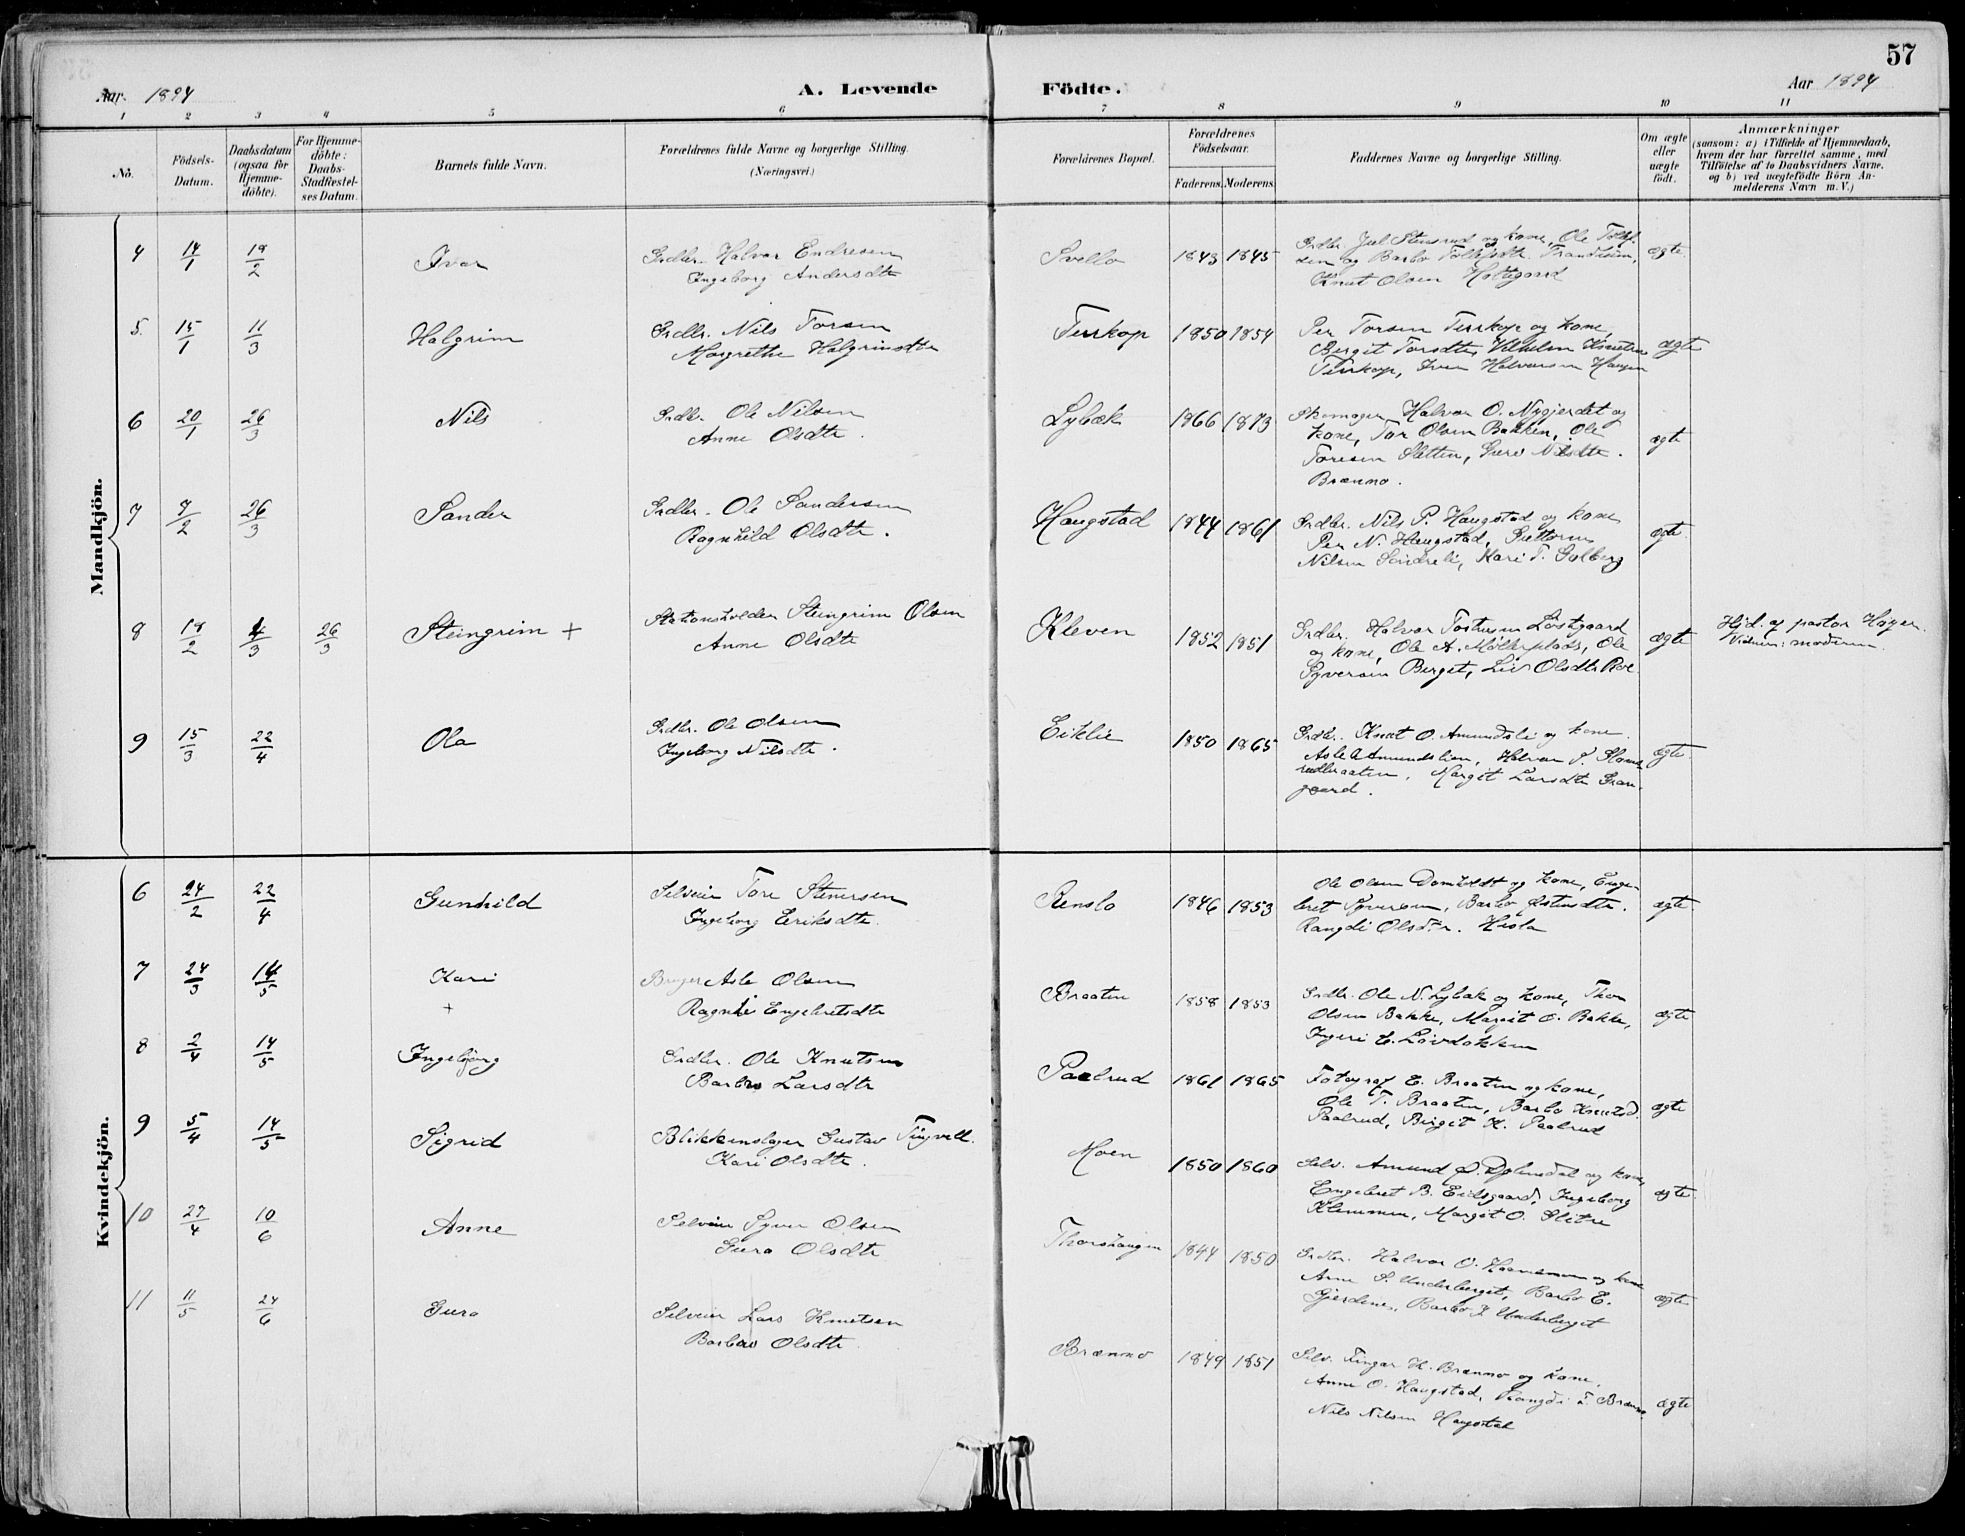 57
Aar. 1894
A. Levende
Födte.
Aar 1894
1 2 3 4 5 6 7 8 9 10 11
No.
Födsels-Datum.
Daabsdatum (ogsaa for Hjemme-döbte).
For Hjemme-döbte: Daabs-Stadfæstel-ses Datum.
Barnets fulde Navn.
Forældrenes fulde Navne og borgerlige Stilling.
(Næringsvei.)
Forældrenes Bopæl.
Forældrenes Födselsaar.
Faderens. Moderens.
Faddernes Navne og borgerlige Stilling.
Om ægte eller uægte födt.
Anmærkninger
(saasom: a) i Tilfælde af Hjemmedaab,
hvem der har forrettet samme, med
Tilföielse af to Daabsvidners Navne,
og b) ved uægtefödte Börn An-
melderens Navn m. V.)
Mandkjön.
4 14/1 18/2 Ivar
Grdbr. Halvor Endresen
Ingeborg Andersdtr
Svello 1843 1845
Grdbr. Juel Stensrud og kone, Ole Tollef-
sen og Barbo Tollefsdtr. Trandsum,
Knut Olsen Holtegaard
ægte.
5. 15/1 11/3 Halgrim
Grdbr. Nils Torsen
Margrethe Halgrimsdtr
Turkop 1850 1854
Per Torsen Turkop og kone,
Bergit Torsdtr, Vilhelm Knutsen
Turkop, Iver Halvorsen Haugen
ægte
6 20/1 26/3 Nils
Grdbr. Ole Nilsen
Anne Olsdtr.
Lybæk 1866 1873
Skomager Halvor O. Nygjerdet og
kone, Tor Olsen Bakken, Ole
Toresen Sletten, Guro Nilsdtr.
Brænno.
ægte
7 7/2 26/3 Sander
Grdbr. Ole Sandersen
Ragnhild Olsdtr.
Haugstad 1844 1861
Grdbr. Nils P. Haugstad og kone
Per N. Haugstad, Guttorm
Nilsen Sindreli, Kari T. Golberg
ægte
8 18/2 4/3 26/3 Steingrim +
Stationsholder Steingrim Olsen
Anne Olsdtr
Kleven 1852 1851
Grdbr. Halvor Tostensen Löstegaard
og kone, Ole A. Mölleplads, Ole
Syversen Berget, Liv Olsdtr Roe
ægte
Hjd. af pastor Høyer.
Vidner: moderen
9 15/3 22/4 Ola
Grdbr. Ole Olsen
Ingeborg Nilsdtr.
Eiklie 1850 1865
Grdbr. Knut O. Amundsli og kone.
Asle A Amundslien, Halvor
Margit Larsdtr Gran-
gaard.
ægte
Kvindekjön.
6 24/2 22/4 Gunhild
Selveier Tore Stenersen
Ingeborg Eriksdtr.
Renslo 1846 1853
Ole Olsen Domholdt og kone, Enge-
bret Syversen, Barbo Østensdtr.
Rangdi Olsdtr. Hesla
ægte
7 24/3 14/5 Kari
+
Bruger Asle Olsen
Ragndi Engebretsdtr
Braaten 1858 1853
Grdbr. Ole N. Lybæk og kone, Thor
Olsen Bakke, Margit O. Bakke,
Ingeri E. Lövdokken
ægte
8 2/4 14/5 Ingebjørg
Grdbr. Ole Knutsen
Barbro Larsdtr
Paalrud 1861 1865
Fotograf E. Braaten og kone,
Ole T. Braaten, Barbo Knutsd.
Paalrud, Birgit K. Paalrud
ægte
9 5/4 14/5 Sigrid
Blikkenslager Gustav Tingvell.
Kari Olsdtr.
Moen 1850 1860
Selv. Amund O. Dylmedal og kone,
Engebret B. Eidsgaard, Ingeborg
Klemmen, Margit O. Slitre
ægte
10 27/4 10/6 Anne
Selveier Syver Olsen
Guro Olsdtr
Thorshaugen 1844 1850
Grdbr. Halvor O. og kone
Anne S. Underberget, Barbo E.
Gjerdene, Barbo J. Underberget
ægte
11 11/5 24/6 Guro
Selveier Lars Knutsen
Barbro Olsdtr
Brænno 1849 1851
Selv. Tingar K. Brænno og kone.
Anne O. Haugstad, Rangdi T. Brænno
Nils Nilsen Haugstad
ægte